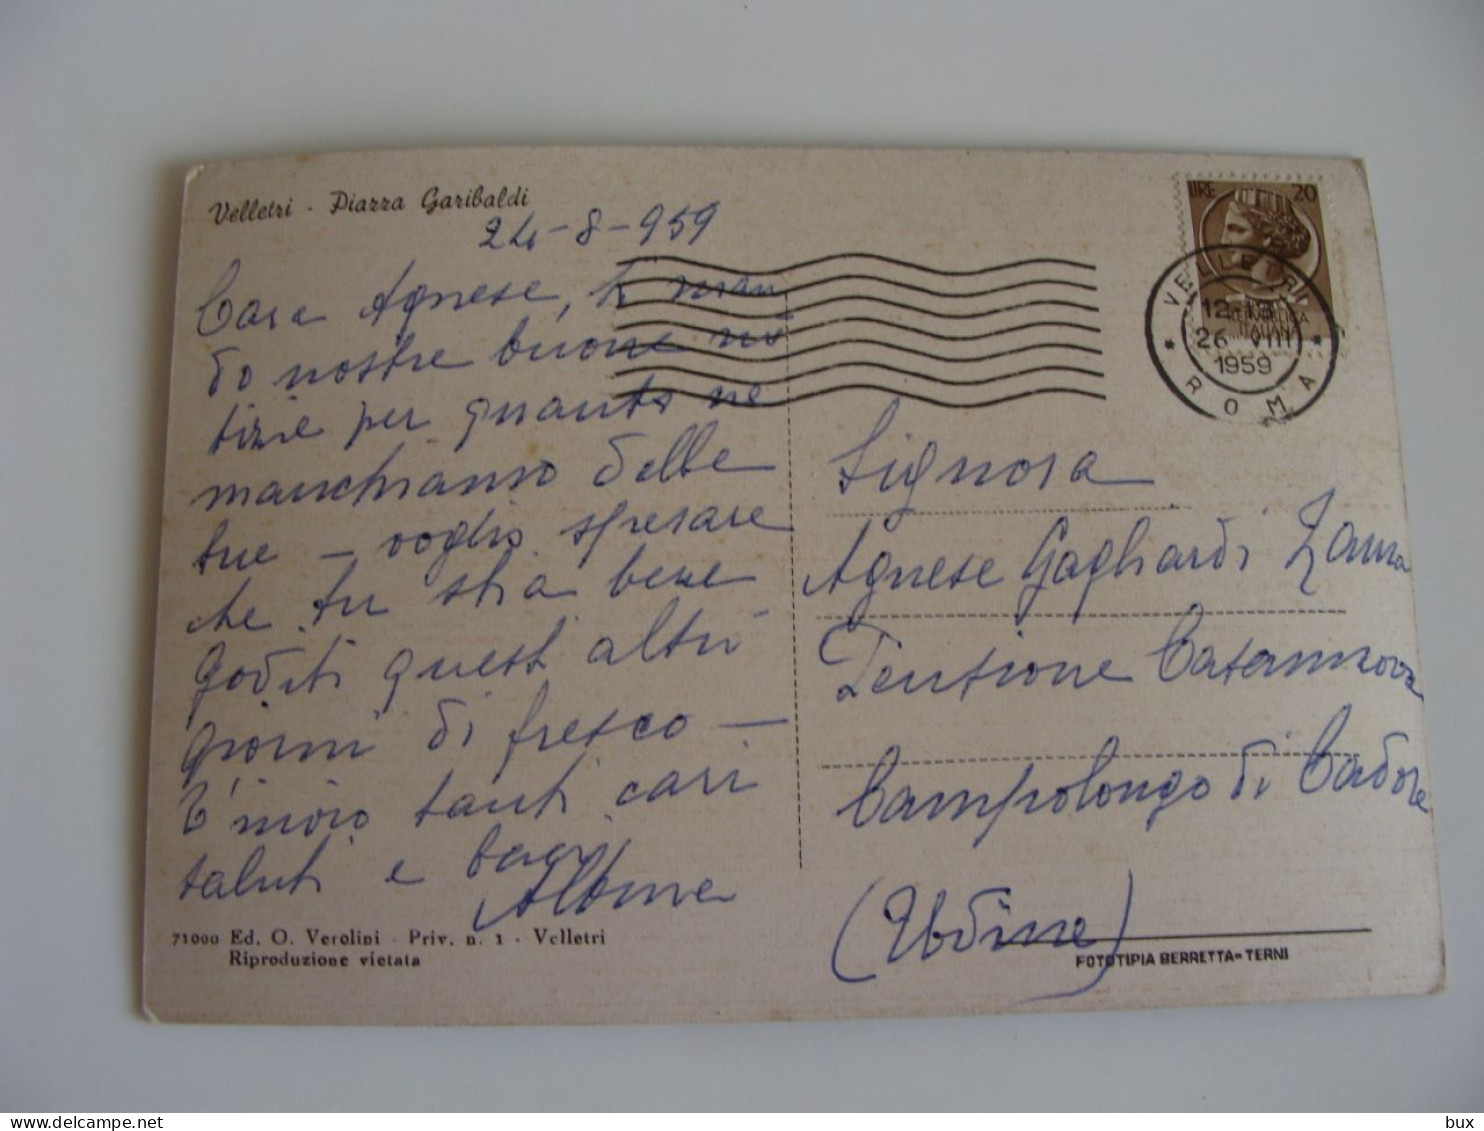 Velletri - Piazza Garibaldi
24-8-959
Cara Agnese, ti man
do nostre buone no
tizie per quanto ne
manchiamo delle
tue - voglio sperare
che tu stia bene
goditi quest'altri
giorni di fresco -
T'invio tanti cari
saluti e baci
71000 Ed. O. Verolini - Priv. n. 1 - Velletri
Riproduzione vietata
LIRE 20
REPUBBLICA
ITALIANA
VELLETRI
26 VIII
1959
* ROMA *
Signora
Agnese Gagliardi Zanna
Pensione Casanuova
Campolongo di Cadore
(Udine)
FOTOTIPIA BERRETTA - TERNI
bux